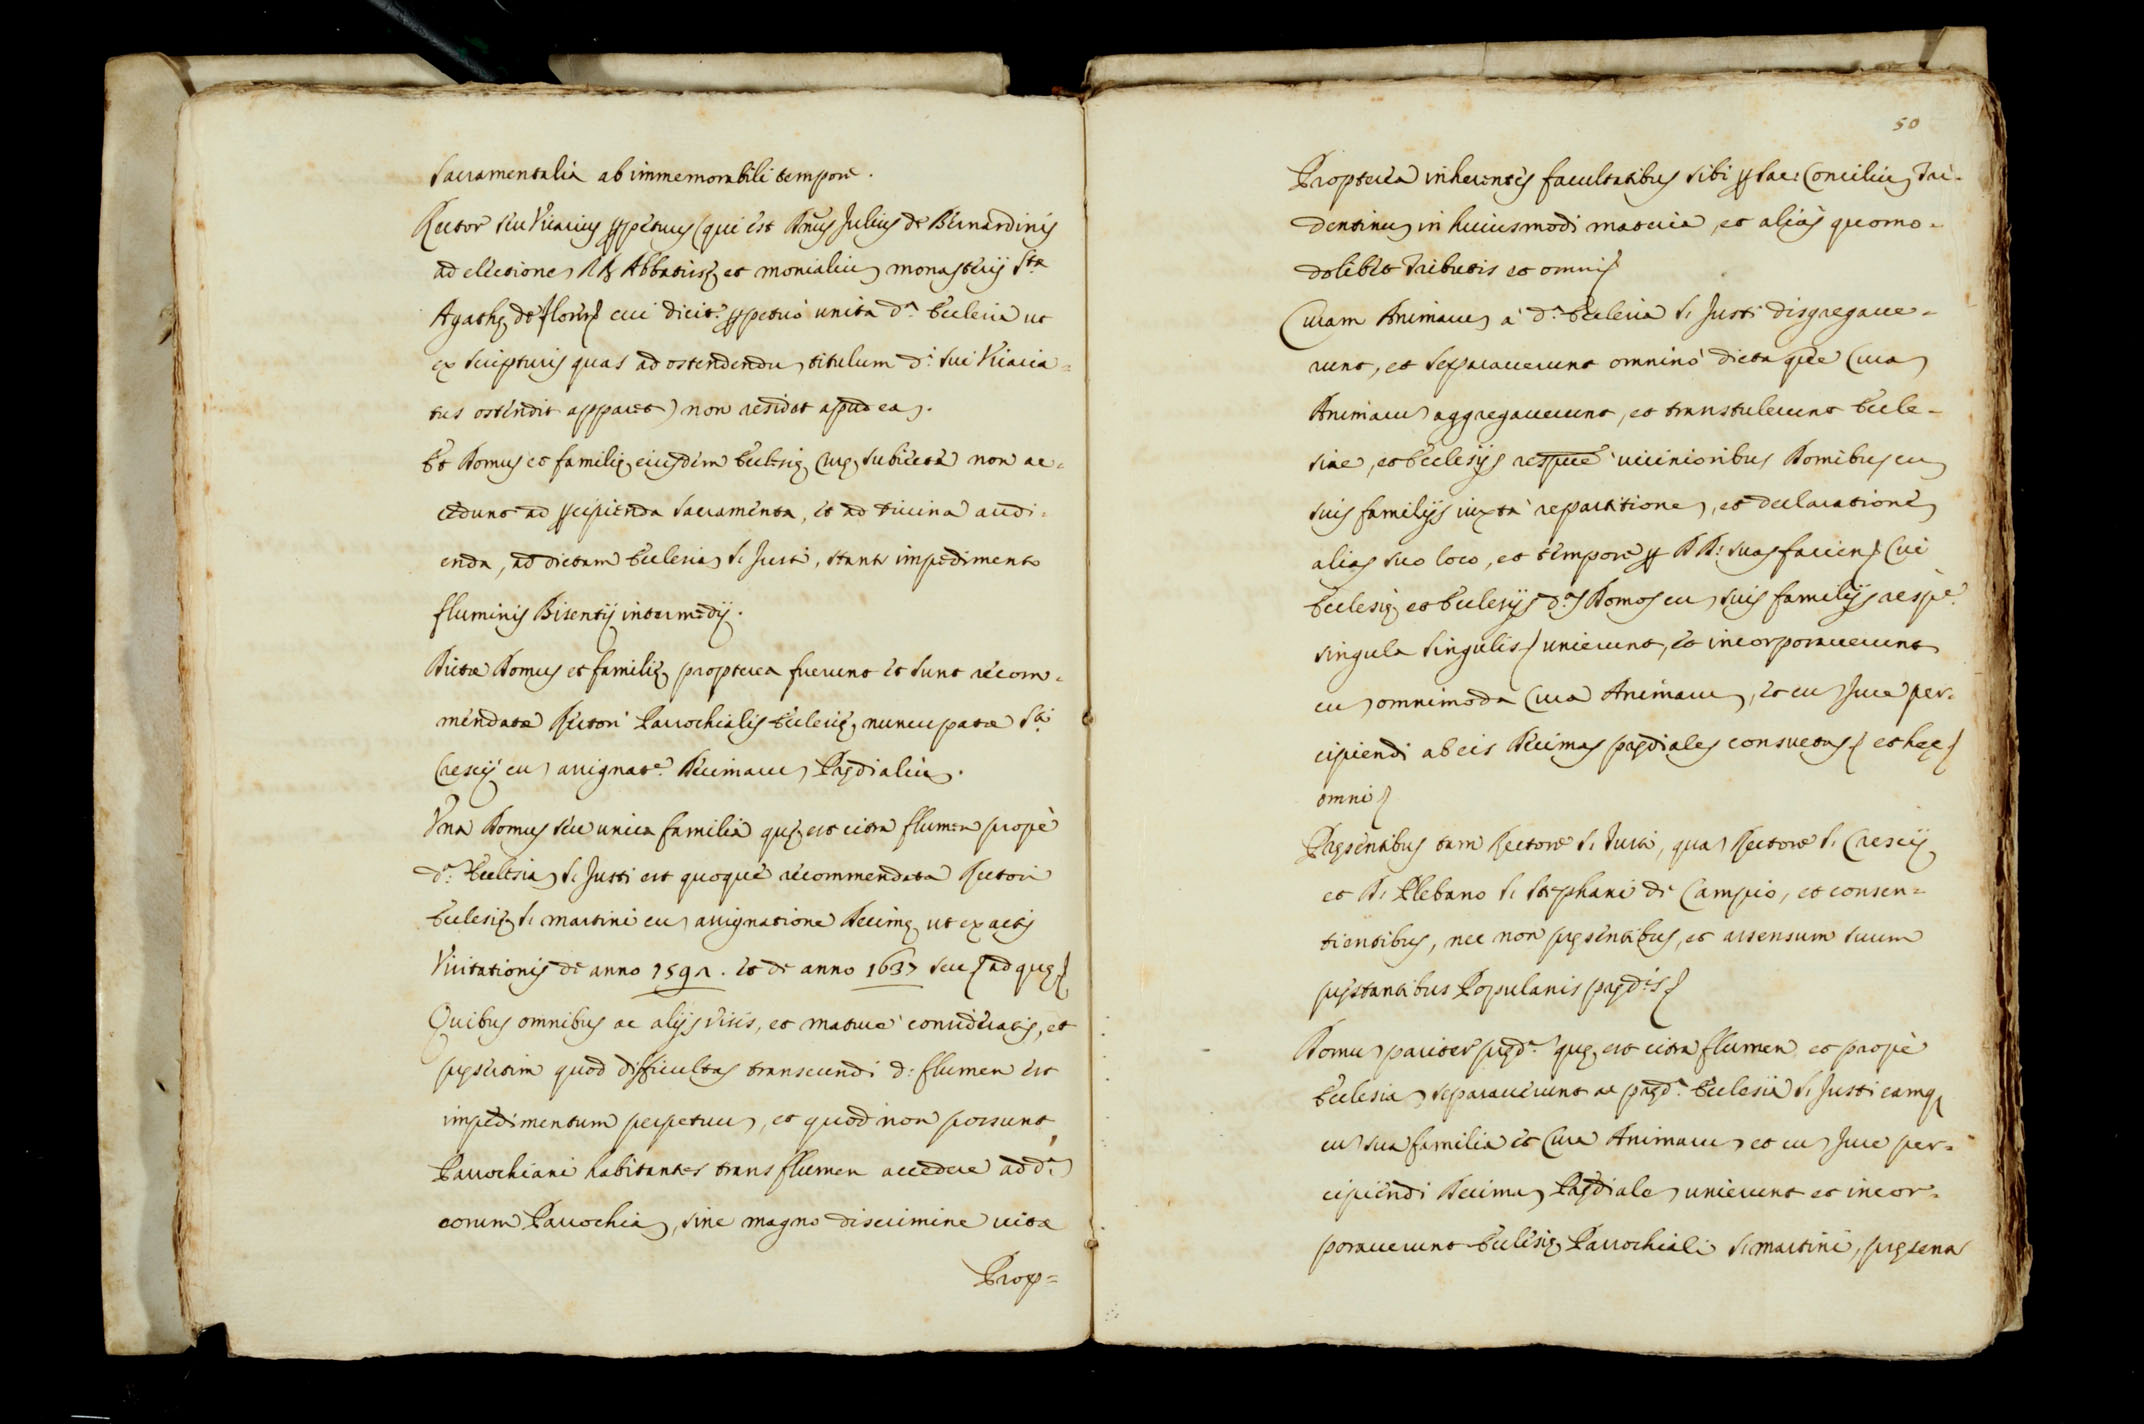 Sacramentalia ab immemorabili tempore.
Rector seu Vicarius ꝑpetuus (qui est Dnũs Julius de Bernardinis
ad electione, RR Abbatissę et monialiũ monasterij Stæ
Agathę de Florẽ cui dicit.r ꝑpetuò unita d.a Ecclesia ut
ex scripturis quas ad ostendendũ titulum d.i sui Vicaria=
tus ostendit apparet) non residet apud eã.
Et Domus et familię eiusdem Ecclesię Curę subiectæ non ac=
cedunt ad ꝑcipienda Sacramenta, et ad divina audi=
enda, ad dictam Ecclesiã S. Justi, stante impedimento
fluminis Bisentij intermedij.
Dictæ Domus et familię propterea fuerunt et sunt recom=
mendatæ Rectori Parrochialis Ecclesię nuncupatæ S.ti
Crescij cũ assignat.e Decimarũ Prędialiũ.
Una Domus seu unica familia quę est citra flumen propè
d.a Ecclesiã S. Justi est quoque recommendata Rectori
Ecclesię S. Martini cũ assignatione Decimę ut ex actis
Visitationis de anno 1592. et de anno 1637 seu ad quę
Quibus omnibus ac alijs visis, et maturè consideratis, et
pręsertim quod difficultas transeundi d: flumen est
impedimentum perpetuũ, et quod non possunt
Parrochiani habitantes trans flumen accedere ad d.ã
eorum Parrochiã, sine magno discrimine vitæ
Prop=
50
Propterea inherentes facultatibus sibi ꝑ Sac: Conciliũ Tri=
dentinũ in huiusmodi materia, et aliàs quomo=
dolibet tributis et omni
Curam Animarũ à d.a Ecclesia S. Justi disgregave=
runt, et separaverunt omninò dicta que Curã
Animarũ aggregaverunt, et transtulerunt Eccle=
siæ, et Ecclesijs respuè vicinioribus Domibus cũ
suis familijs iuxta repartitionẽ, et declarationẽ
alias suo loco, et tempore ꝑ DD: suas facien Cui
Ecclesię et Ecclesijs d.as Domos cũ suis familijs respe.
singula singulis univerunt, et incorporaverunt
cũ omnimoda Cura Animarũ, et cũ Jure per=
cipiendi ab eis Decimas prędiales consuetas et hęc
omni
Pręsentibus tam Rectore S. Justi, quã Rectore S. Crescij
et D. Plebano S. Stephani de Campio, et consen=
tientibus, nec non pręsentibus, et assensum suum
pręstantibus Popularis pręd.is
Domũ pariter pręd.a quę est citra flumen et propè
Ecclesiã separaverunt ac pręd.a Ecclesia S. Justi eamq
cũ sua familia et Cura Animarũ et cũ Jure per=
cipiendi Decimã Prędialẽ univerunt et incor=
poraverunt Ecclesię Parrochiali S. Martini, pręsent